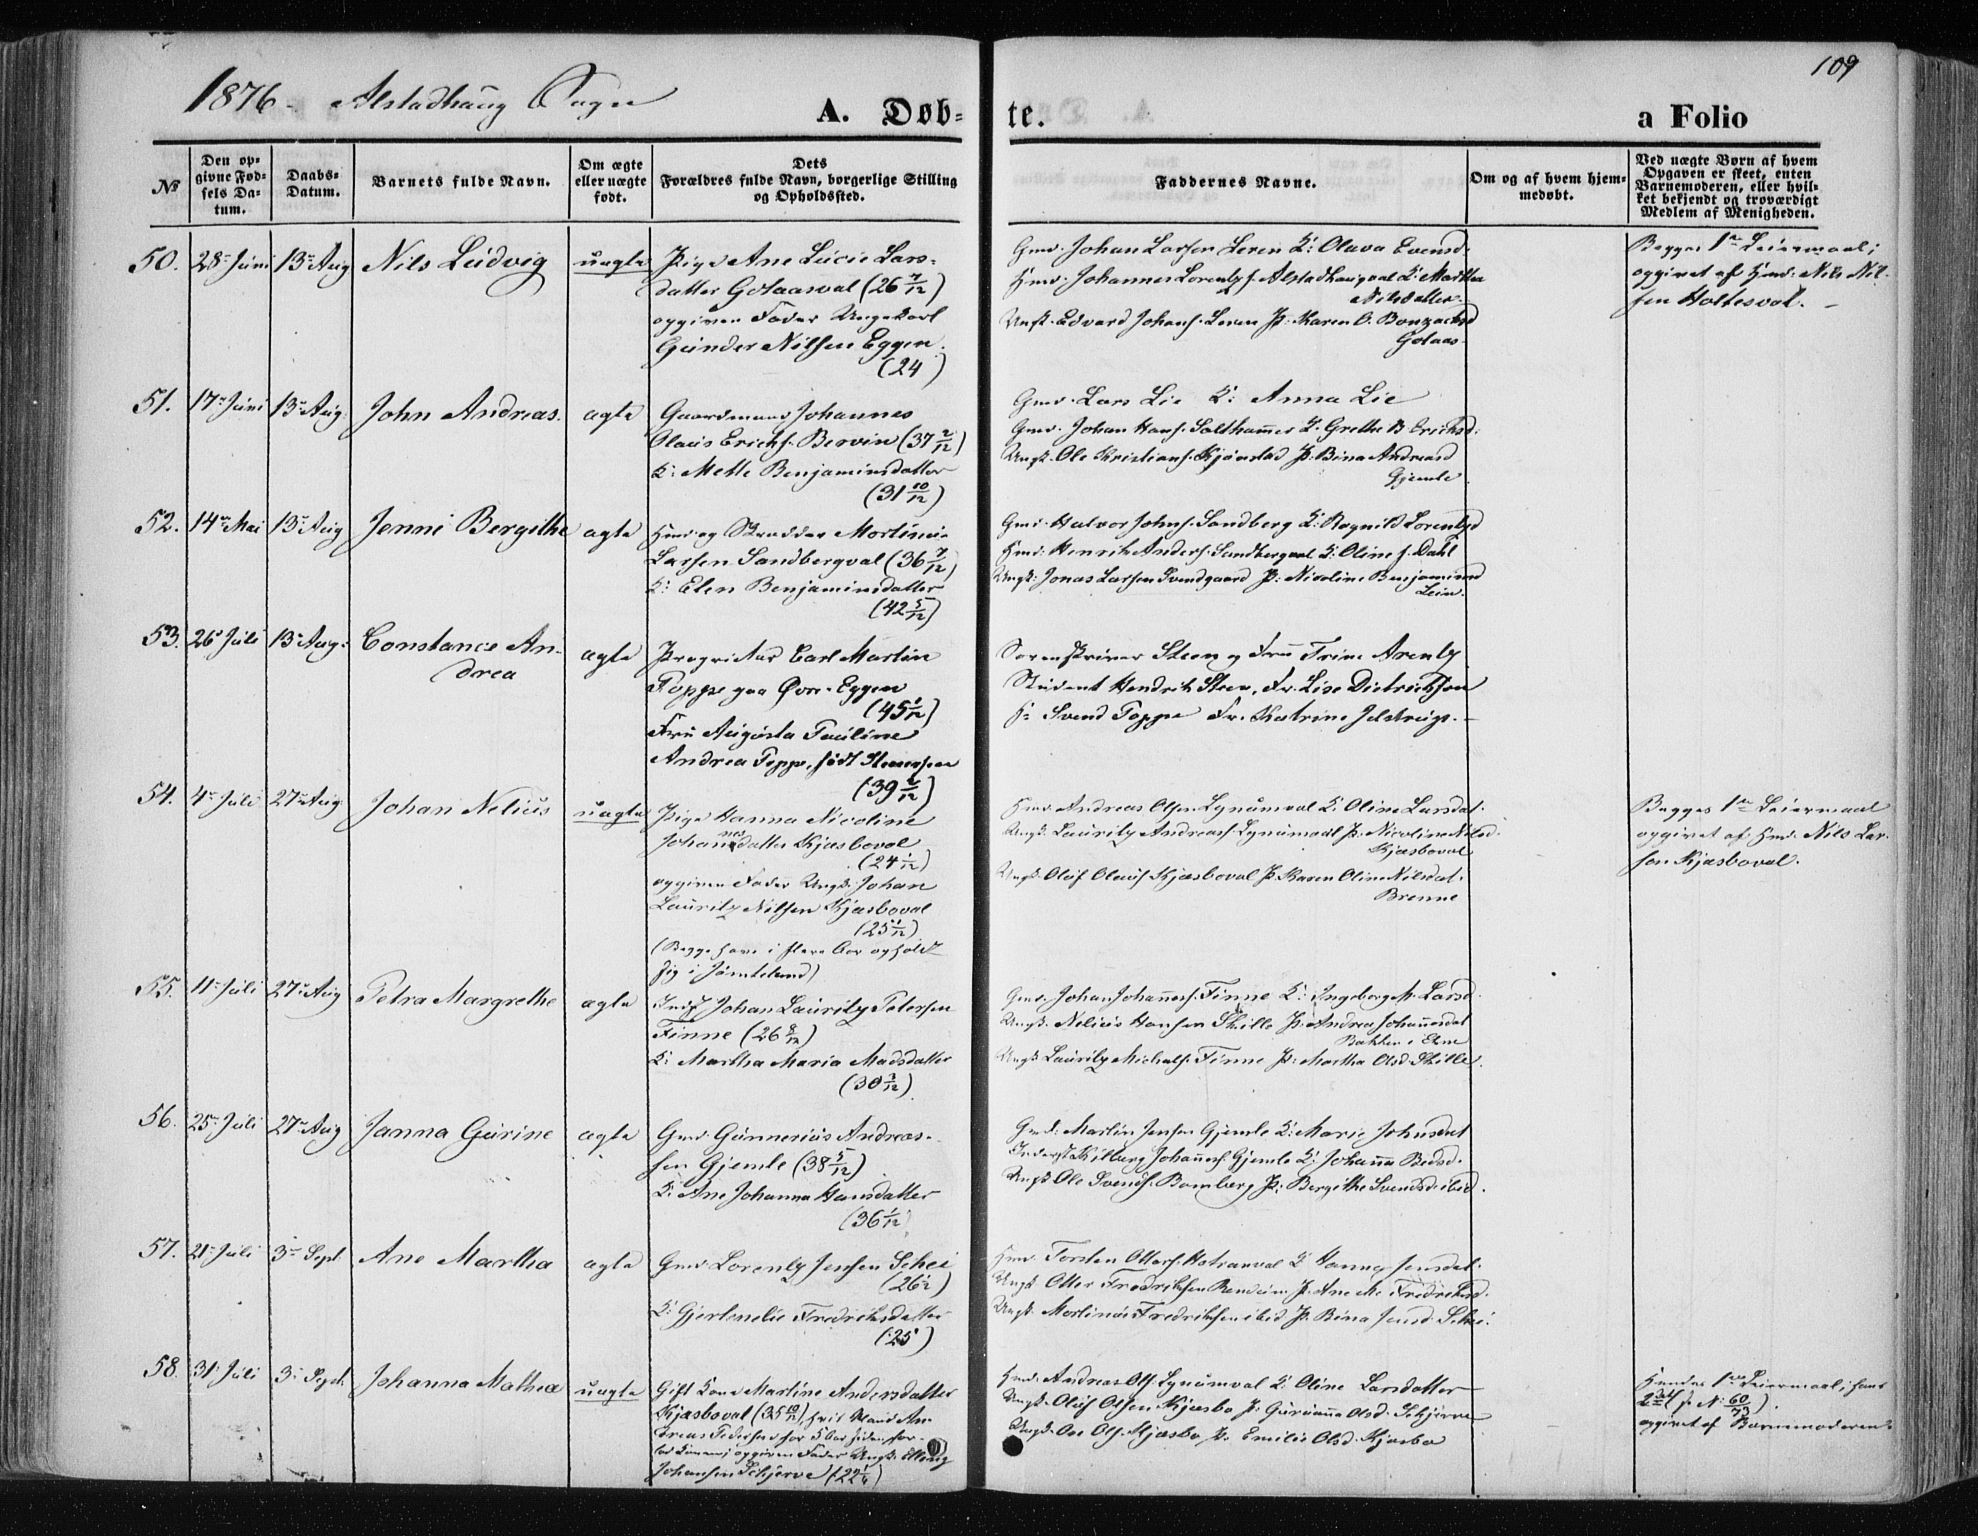 109
1876. Alstadhaug Sogn
A. Døb= te. a Folio
№ Den op= givne Fød= sels Da= tum. Daabs= Datum. Barnets fulde Navn. Om ægte eller uægte født. Dets Forældres fulde Navn, borgerlige Stilling og Opholdssted. Faddernes Navne. Om og af hvem hjem= medøbt. Ved uægte Børn af hvem Opgaven er skeet, enten Barnemoderen, eller hvil= ket bekjendt og troværdigt Medlem af Menigheden.
50. 28 Juni 13 Aug Nils Ludvig uægte Pige Ane Lucie Lars=
datter Golaasval (26 7/12)
opgiven Fader Ungkarl
Gunder Nilsen Eggen
(24)
Gmd. Johan Larsen Leren K: Olava Evensd.
Hmd. Johannes Lorentzs. Alstadhaugval K. Martha
Nilsdatter
Ungk. Edvard Johans. Leren P. Karen O.
Golaas
Begges 1ste Leiermaal;
opgivet af Hmd. Nils Nil=
sen Holtesval.
51. 17 Juni 13 Aug. John Andreas. ægte Gaardmand Johannes
Olaus Erichs. Bervin (37 2/12)
K: Mette Benjaminsdatter
(31 10/12)
Gmd. Lars Lie K: Anna Lie
Gmd. Johan Hans. Salthammer K. Grethe B. Erichsd.
Ungk. Ole Kristians. Kjønstad P. Bina Andreasd
Gjemle
52. 14 Mai 13 Aug Jenni Bergithe ægte Hmd og Skrædder Mortinus
Larsen Sandbergval (36 7/12)
K: Elen Benjaminsdatter
(42 5/12)
Gmd. Halvor Johns. Sandberg K. Ragnild Lorentzd
Hmd. Henrik Anders. Sandbergval K: Oline J. Dahl
Ungk: Jonas Larsen Svendgaard P: Nicoline Benjaminsd
Lein.
53. 26 Juli 13 Aug. Constance An=
drea
ægte Proprietær Carl Martin
Poppe paa Øvre Eggen
(45 1/12)
Fru Augusta Pauline
Andrea Poppe, født
(39 2/12)
Sorenskriver Steen og Fru Trine Arentz
Student Hendrik Steen, Fr. Lise Dietrichson
Hr Svend Poppe Fr. Katrine Jelstrup.
54. 4 Juli 27 Aug. Johan Nelius uægte Pige Hanna Nicoline
Johannesdatter Kjæsboval
(24 1/12)
opgiven Fader Ungk: Johan
Lauritz Nilsen Kjæsboval
(25 1/12)
(Begge have i flere Aar opholdt
sig i Jämteland)
Hmd. Andreas Olsen Lynumval K. Oline Larsdat.
Ungk. Lauritz Andreas. Lynumval P. Nicoline Nilsd.
Kjæsboval
Ungk. Oluf Olaus. Kjæsboval P. Karen Oline Nilsdat.
Brenne
Begges 1ste Leiermaal
opgivet af Hmd. Nils Lar=
sen Kjæsboval.
55. 11 Juli 27 Aug Petra Margrethe ægte Indst Johan Lauritz Petersen
Finne (26 8/12)
K. Martha Maria Madsdatter
(30 3/12)
Gmd. Johan Johannes. Finne K. Ingeborg M. Larsd.
Ungk. Nelius Hansen Skille P. Andrea Johannesdat
Bakken i Ekne
Ungk Lauritz Michals. Finne P: Martha Olsd. Skille.
56. 25 Juli 27 Aug Janna Gurine ægte Gmd. Gunnerius Andreas=
sen Gjemle (38 5/12)
K. Ane Johanna Hansdatter
(36 1/12)
Gmd: Martin Jensen Gjemle K: Marie Johnsdat
Johannes. Gjemle K. Johanna
Ungk Ole Svends. Bomberg P. Bergithe Svendsd. ibid.
57. 21 Juli 3 Sept. Ane Martha ægte Gmd. Lorentz Jensen Schei
(26 1/2)
K: Fredriksdatter
(25)
Hmd. Torsten Otters. K Jensdat.
Ungk Otter Fredriksen P. Ane M. Fredriksd.
Ungk. Mortinus Fredriksen ibid P. Bina Jensd. Schei.
58. 31 Juli 3 Sept. Johanna Mathea uægte Gift Kone Martine Andersdatter
Kjæsboval (35 10/12), hvis Mand An=
dreas Pedersen for 5 Aar siden for=
opgiven Fader Ungk: Elling
Johansen Schjerve (22 1/4)
Hmd. Andreas Ols. Lynumval K. Oline Larsdatter
Ungk. Oluf Olsen Kjæsbo P. Gurianna Olsd. Schjerve
Ungk. Ole Ols. Kjæsbo P. Emilie Olsd. Kjæsbo
Hendes 1ste Leiermaal; hans
2det (s. N. 60/73).
opgivet af Barnemoderen.